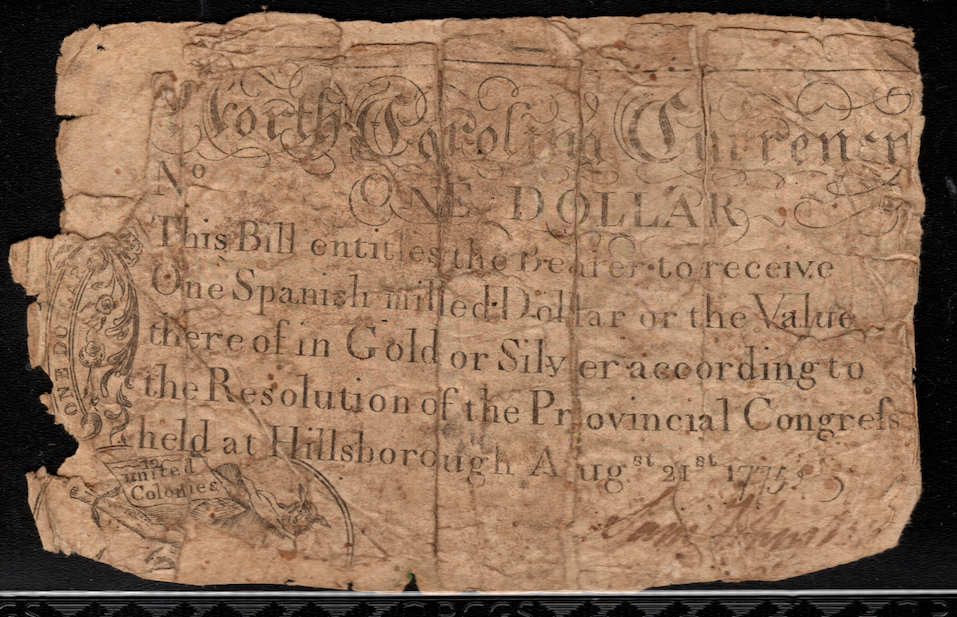 North Carolina Currency
No
ONE DOLLAR
This Bill entitles the Bearer to receive
One Spanish milled Dollar or the Value
there of in Gold or Silver according to
the Resolution of the Provincial Congreſs
held at Hillsborough Augst 21st 1775
ONE DOLLAR
12
united
Colonies